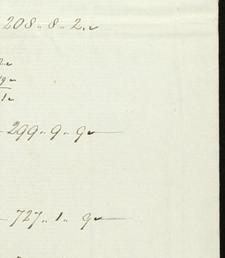 208 " 8 " 2 "
2 "
9 "
1 "
299 " 9 " 9 "
727 " 1 " 9 "